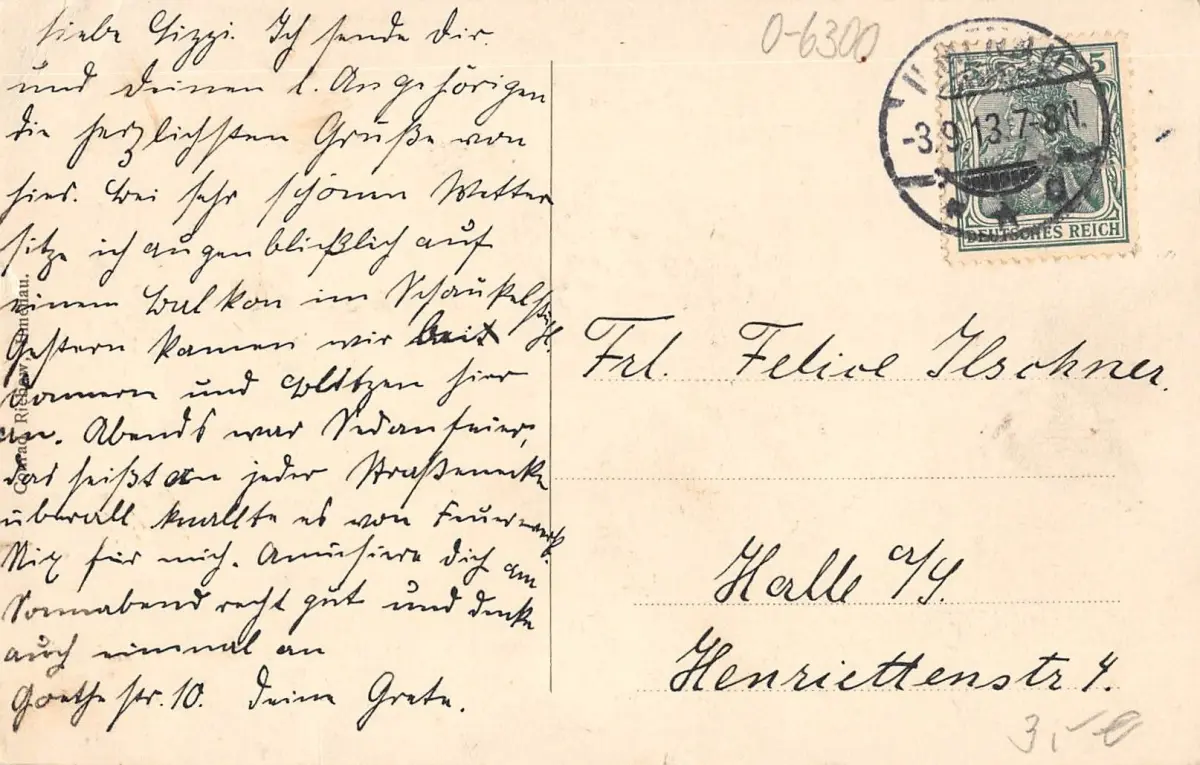 Liebe Lizzi. Ich sende Dir
und Deinen l. Angehörigen
die herzlichsten Grüße von
hier. Bei sehr schönem Wetter
sitze ich augenblicklich auf
einem Balkon im Schaukelstuhl.
Gestern kamen wir bei
Donnern und Blitzen hier
an. Abends war Sedanfeier,
das heißt an jeder Straßenecke
überall knallte es von Feuerwerk.
Nix für mich. Amüsiere Dich am
Sonnabend recht gut und denke
auch einmal an
Goethestr. 10. Deine Grete.
Conrad Ilmenau.
0-6300
ILMENAU
-3.9.13.7-8N.
* * a
5 5
DEUTSCHES REICH
Frl. Felice Ilschner.
Halle a/S.
Henriettenstr 4.
3,-